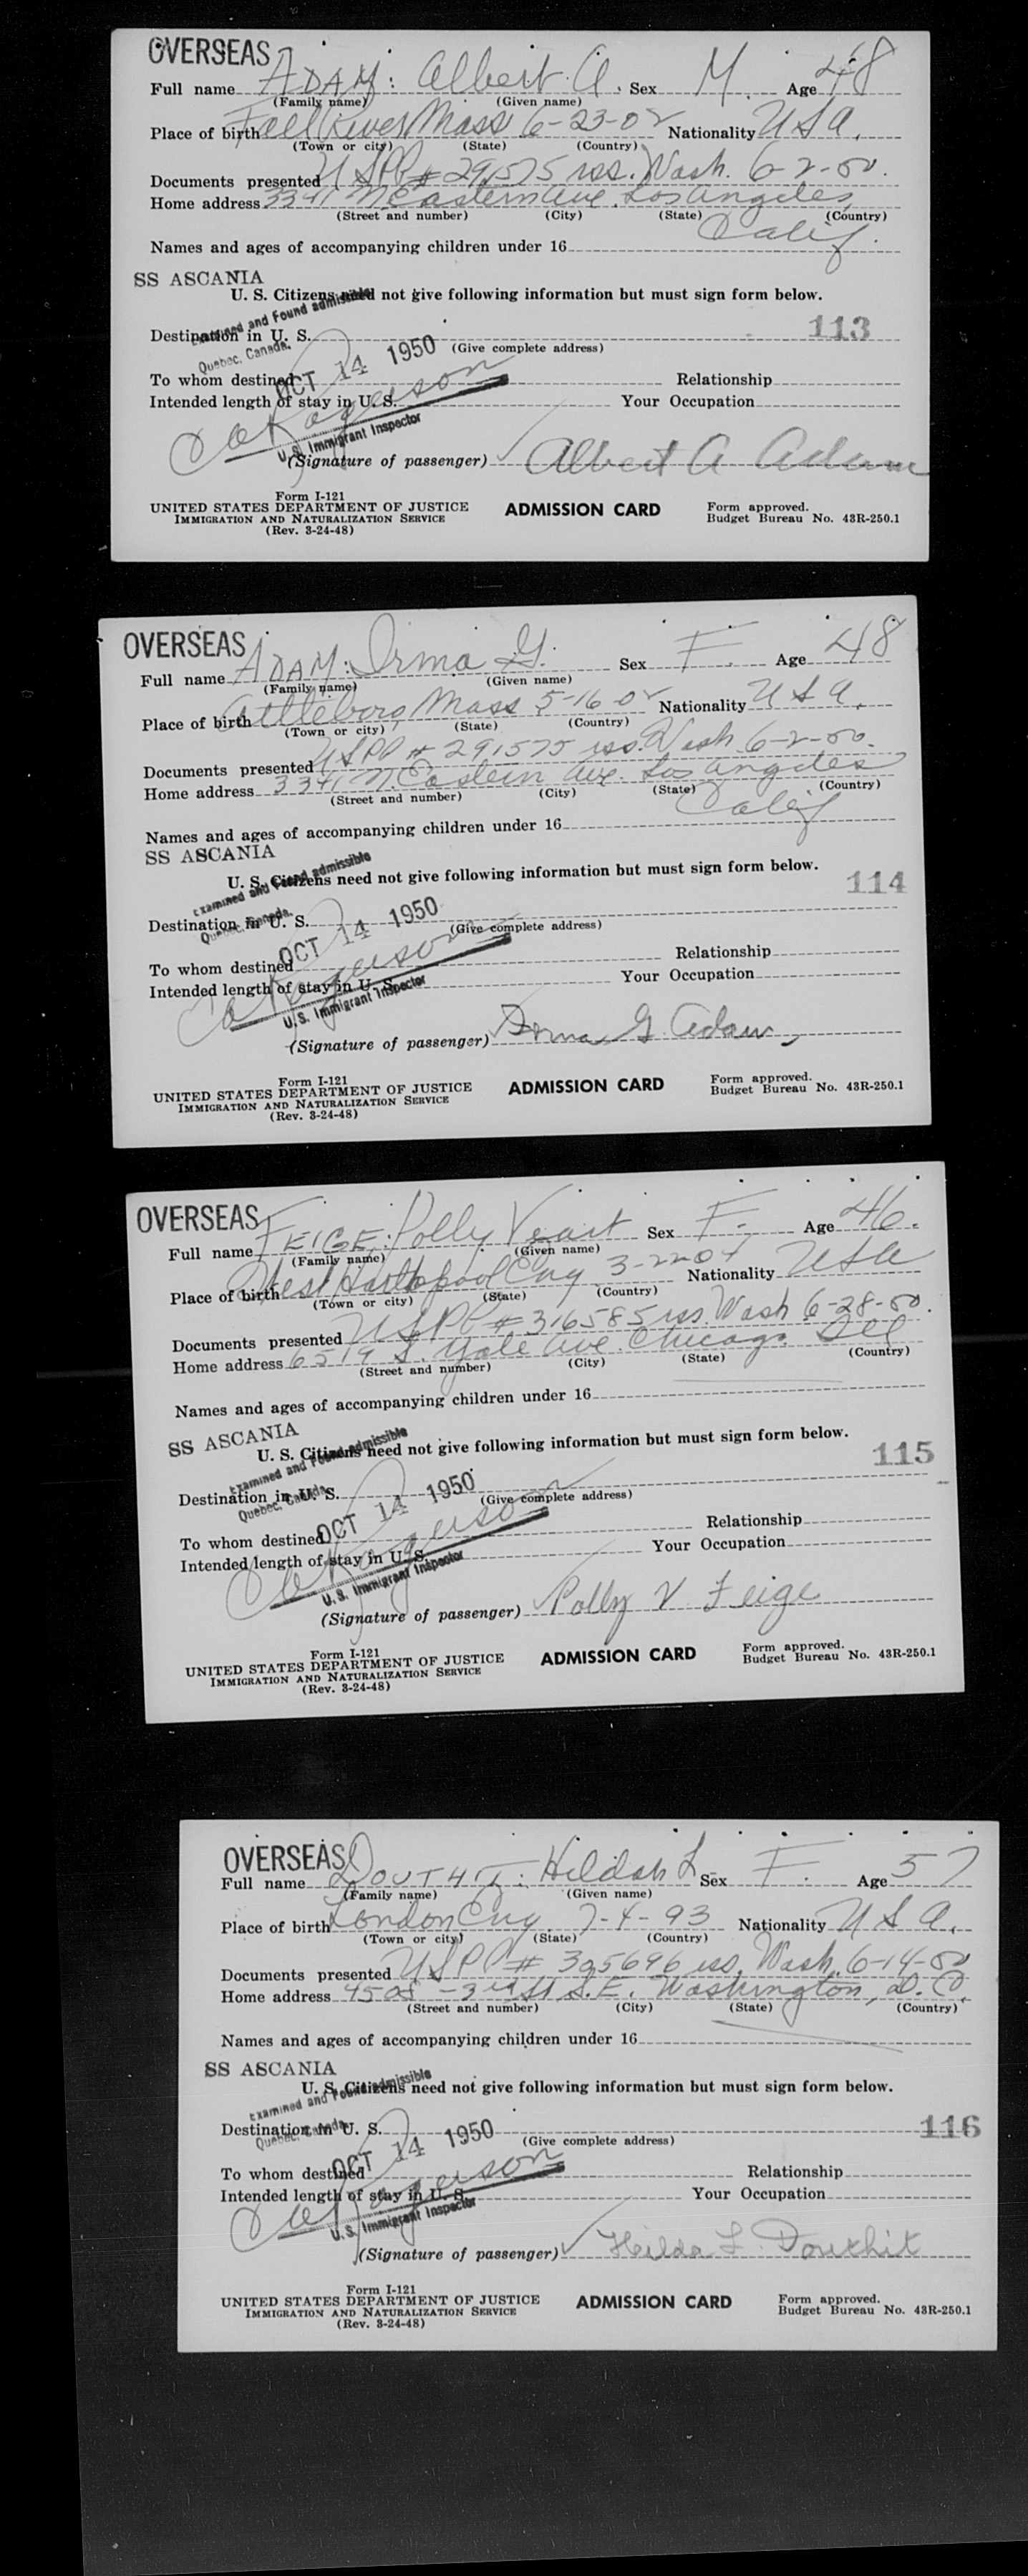 OVERSEAS
Full name ADAM: Albert A. Sex M. Age 48
(Family name) (Given name)
Place of birth Fall River Mass 6-23-02 Nationality USA.
(Town or city) (State) (Country)
Documents presented USPP # 291575 iss. Wash. 6-2-50.
Home address 3341 N Eastern Ave. Los Angeles
(Street and number) (City) (State) (Country)
Calif.
Names and ages of accompanying children under 16
SS ASCANIA
U. S. Citizens need not give following information but must sign form below.
Examined and Found admissible
Destination in U. S. 113
Quebec, Canada.
(Give complete address)
OCT 14 1950
To whom destined Relationship
Intended length of stay in U. S. Your Occupation
U. S. Immigrant Inspector
(Signature of passenger) Albert A Adam
Form I-121
UNITED STATES DEPARTMENT OF JUSTICE ADMISSION CARD Form approved.
IMMIGRATION AND NATURALIZATION SERVICE Budget Bureau No. 43R-250.1
(Rev. 3-24-48)
OVERSEAS
Full name ADAM: Irma G. Sex F. Age 48
(Family name) (Given name)
Place of birth Attleboro Mass 5-16-02 Nationality USA.
(Town or city) (State) (Country)
Documents presented USPP # 291575 iss. Wash 6-2-50.
Home address 3341 N. Eastern Ave. Los Angeles
(Street and number) (City) (State) (Country)
Calif
Names and ages of accompanying children under 16
SS ASCANIA
U. S. Citizens need not give following information but must sign form below.
Examined and Found admissible
114
Destination in U. S.
Quebec, Canada.
(Give complete address)
OCT 14 1950
To whom destined Relationship
Intended length of stay in U. S. Your Occupation
U. S. Immigrant Inspector
(Signature of passenger) Irma G. Adam
Form I-121
UNITED STATES DEPARTMENT OF JUSTICE ADMISSION CARD Form approved.
IMMIGRATION AND NATURALIZATION SERVICE Budget Bureau No. 43R-250.1
(Rev. 3-24-48)
OVERSEAS
Full name FEIGE: Polly Sex F. Age 46.
(Family name) (Given name)
Place of birth West Hartlepool Eng 3-22-04 Nationality USA
(Town or city) (State) (Country)
Documents presented USPP # 316585 iss. Wash 6-28-50.
Home address 6519 S. Yale Ave. Chicago Ill
(Street and number) (City) (State) (Country)
Names and ages of accompanying children under 16
SS ASCANIA
U. S. Citizens need not give following information but must sign form below.
Examined and Found admissible
115
Destination in U. S.
Quebec, Canada
(Give complete address)
OCT 14 1950
To whom destined Relationship
Intended length of stay in U. S. Your Occupation
U. S. Immigrant Inspector
(Signature of passenger) Polly V Feige
Form I-121
UNITED STATES DEPARTMENT OF JUSTICE ADMISSION CARD Form approved.
IMMIGRATION AND NATURALIZATION SERVICE Budget Bureau No. 43R-250.1
(Rev. 3-24-48)
OVERSEAS
Full name DOUTHIT: Hildah L Sex F. Age 57
(Family name) (Given name)
Place of birth London Eng. 7-4-93 Nationality USA.
(Town or city) (State) (Country)
Documents presented USPP # 325696 iss. Wash. 6-14-50
Home address 3rd St S.E. Washington, D.C.
(Street and number) (City) (State) (Country)
Names and ages of accompanying children under 16
SS ASCANIA
U. S. Citizens need not give following information but must sign form below.
Examined and Found admissible
Destination in U. S. 116
Quebec, Canada
(Give complete address)
OCT 14 1950
To whom destined Relationship
Intended length of stay in U. S. Your Occupation
U. S. Immigrant Inspector
(Signature of passenger) Hilda L. Douthit
Form I-121
UNITED STATES DEPARTMENT OF JUSTICE ADMISSION CARD Form approved.
IMMIGRATION AND NATURALIZATION SERVICE Budget Bureau No. 43R-250.1
(Rev. 3-24-48)